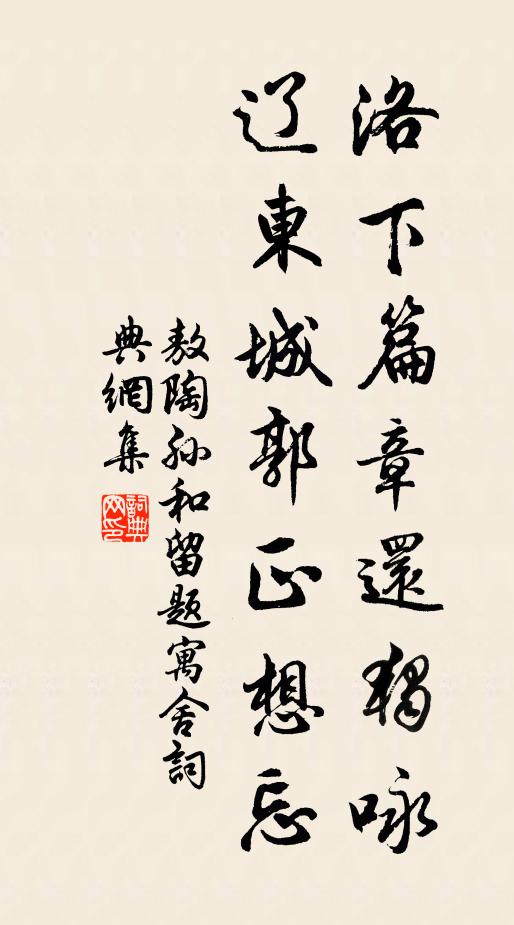 洛下篇章還獨咏
辽東城郭正想忘
敖陶孙和留题寓舍詞
典網集
詞典
网印